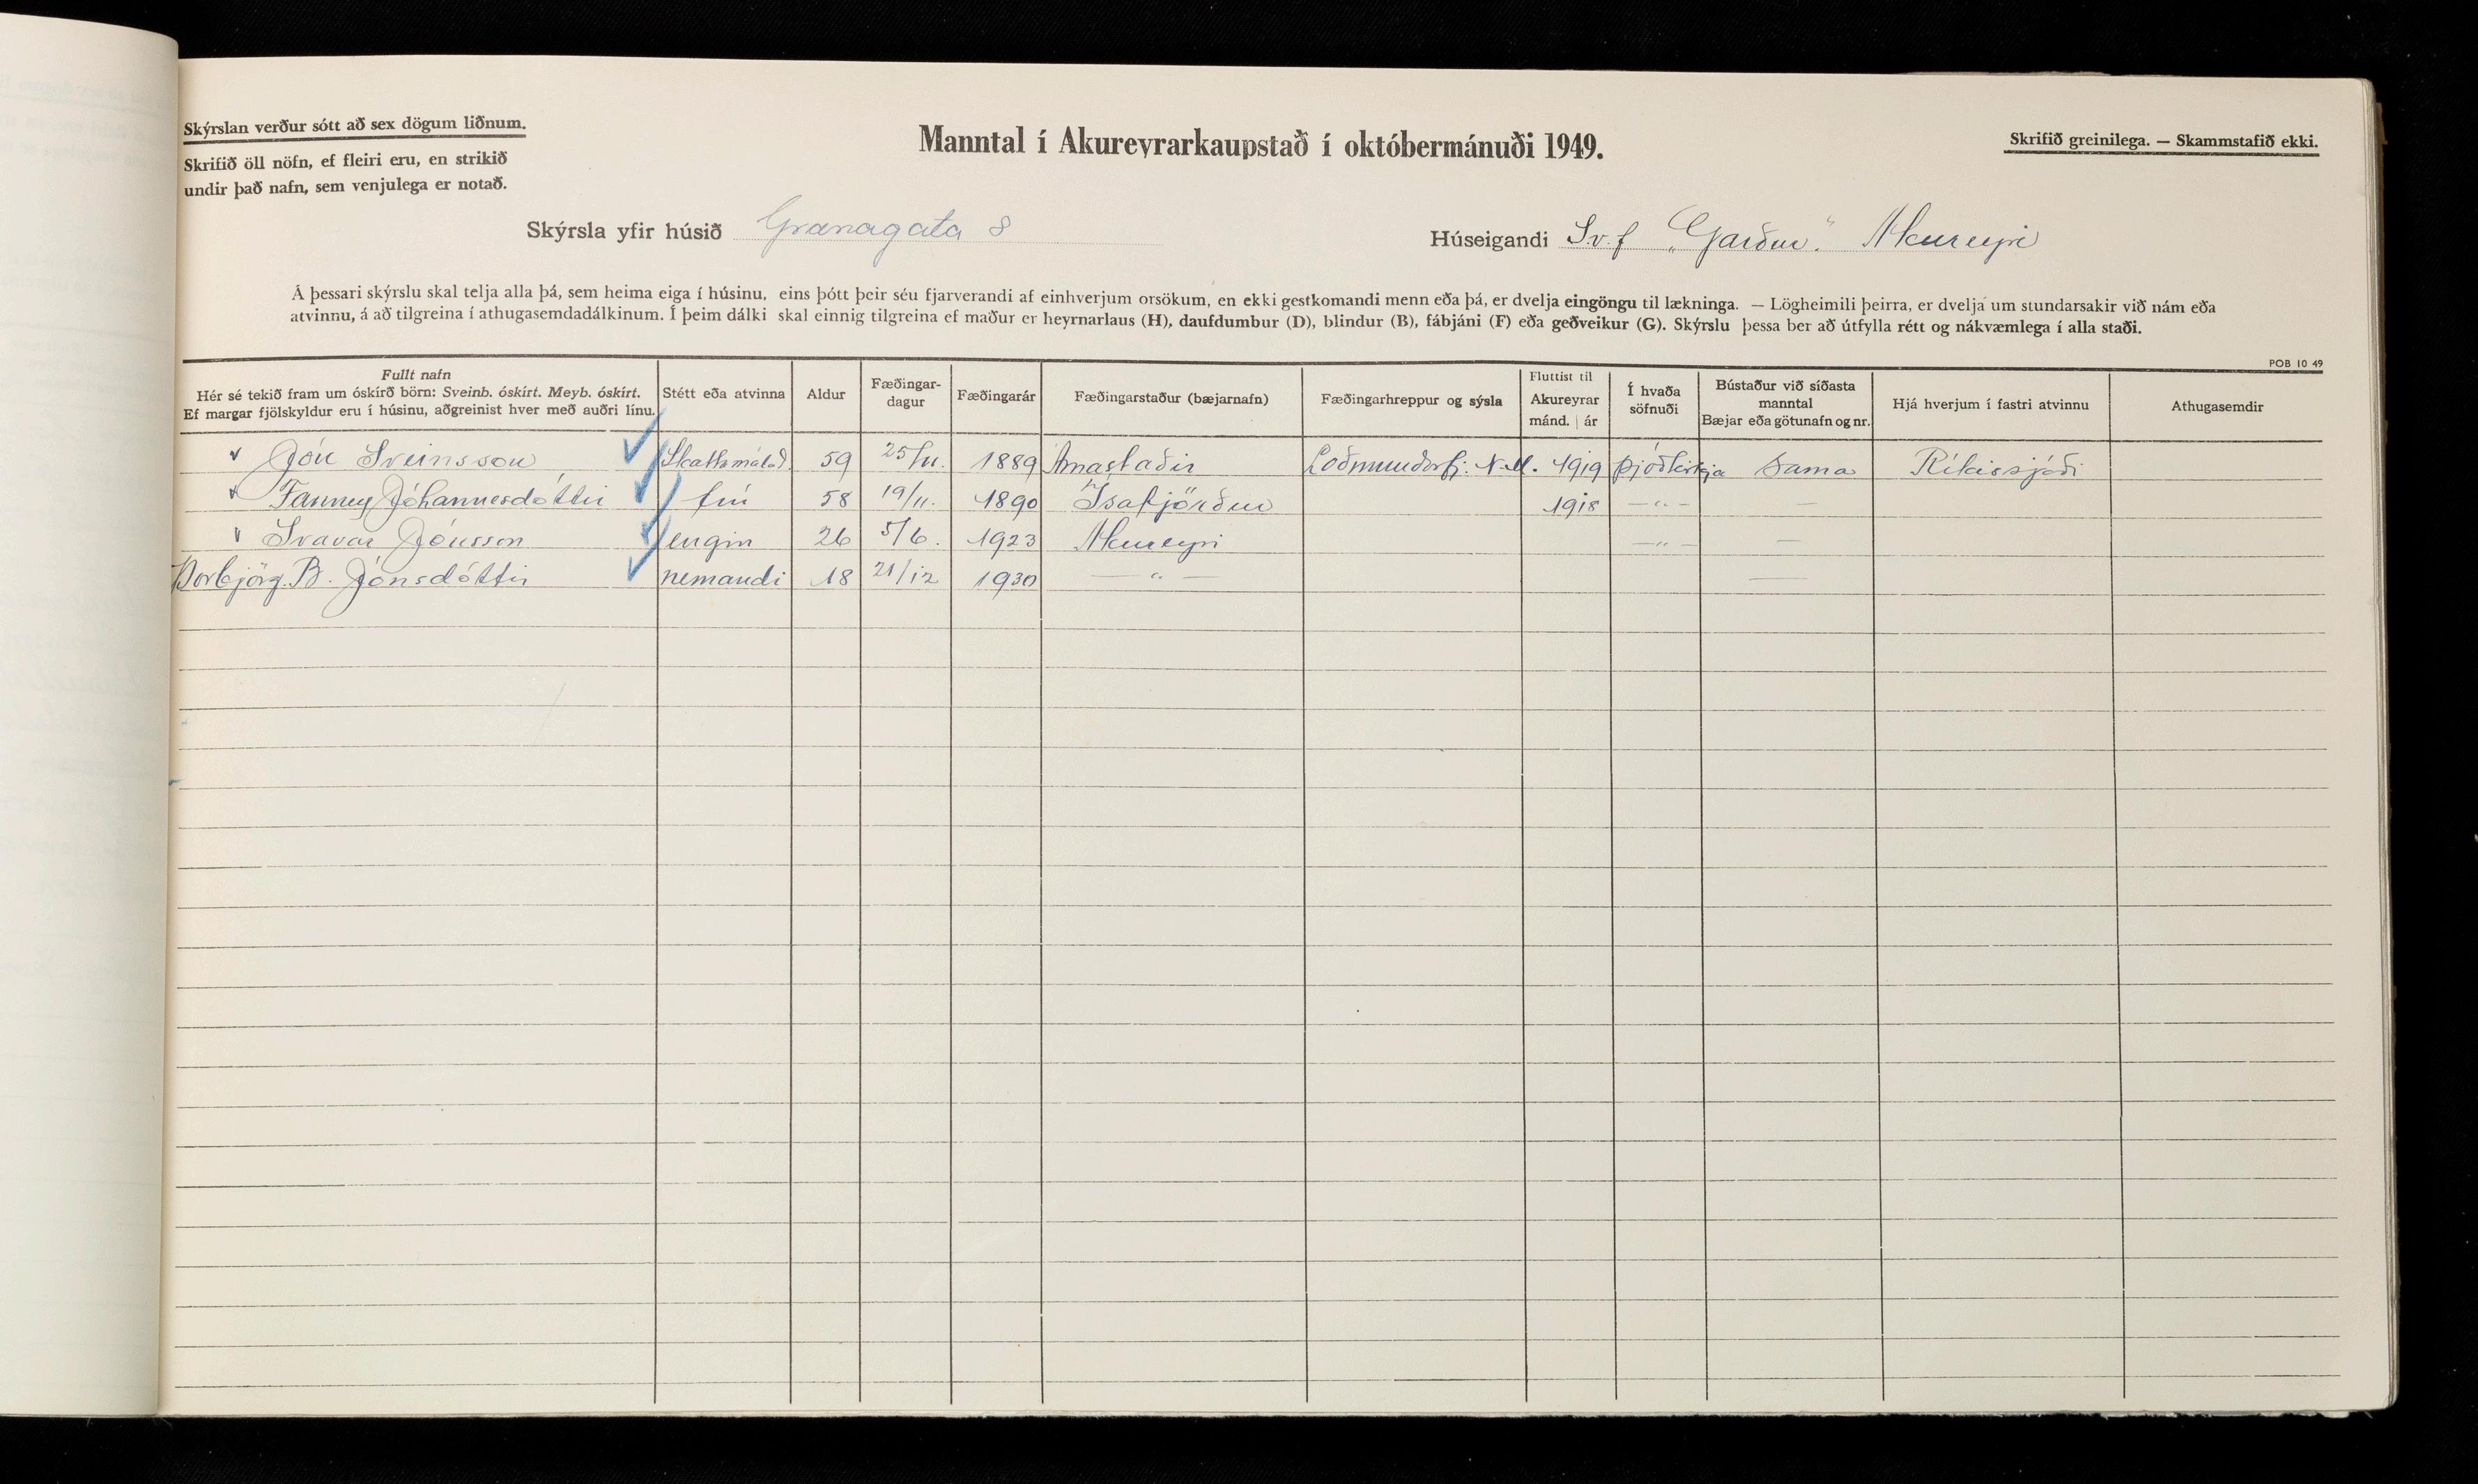 Skýrslan verður sótt að sex dögum liðnum.
Skrifið öll nöfn, ef fleiri eru, en strikið
undir það nafn, sem venjulega er notað.
Manntal í Akureyrarkaupstað í októbermánuði 1949.
Skrifið greinilega. — Skammstafið ekki.
Skýrsla yfir húsið Grænagata 8
Húseigandi Sv.f „Garður“ Akureyri
Á þessari skýrslu skal telja alla þá, sem heima eiga í húsinu, eins þótt þeir séu fjarverandi af einhverjum orsökum, en ekki gestkomandi menn eða þá, er dvelja eingöngu til lækninga. — Lögheimili þeirra, er dvelja um stundarsakir við nám eða
atvinnu, á að tilgreina í athugasemdadálkinum. Í þeim dálki skal einnig tilgreina ef maður er heyrnarlaus (H), daufdumbur (D), blindur (B), fábjáni (F) eða geðveikur (G). Skýrslu þessa ber að útfylla rétt og nákvæmlega í alla staði.
POB 10 49
Fullt nafn
Hér sé tekið fram um óskírð börn: Sveinb. óskírt. Meyb. óskírt.
Ef margar fjölskyldur eru í húsinu, aðgreinist hver með auðri línu.
Stétt eða atvinna
Aldur
Fæðingar-
dagur
Fæðingarár
Fæðingarstaður (bæjarnafn)
Fæðingarhreppur og sýsla
Fluttist til
Akureyrar
mánd. | ár
Í hvaða
söfnuði
Bústaður við síðasta
manntal
Bæjar eða götunafn og nr.
Hjá hverjum í fastri atvinnu
Athugasemdir
Jón Sveinsson Skattamálad. 59 25/11. 1889 Árnastaðir Loðmundarfj. N-M. 1919 þjóðkirkja Sama Ríkissjóði
Fanney Jóhannesdóttir frú 58 19/11. 1890 Ísafjörður 1918 —〃— —
Svavar Jónsson engin 26 5/6. 1923 Akureyri —〃— —
Þorbjörg. B. Jónsdóttir nemandi 18 21/12 1930 —〃— —